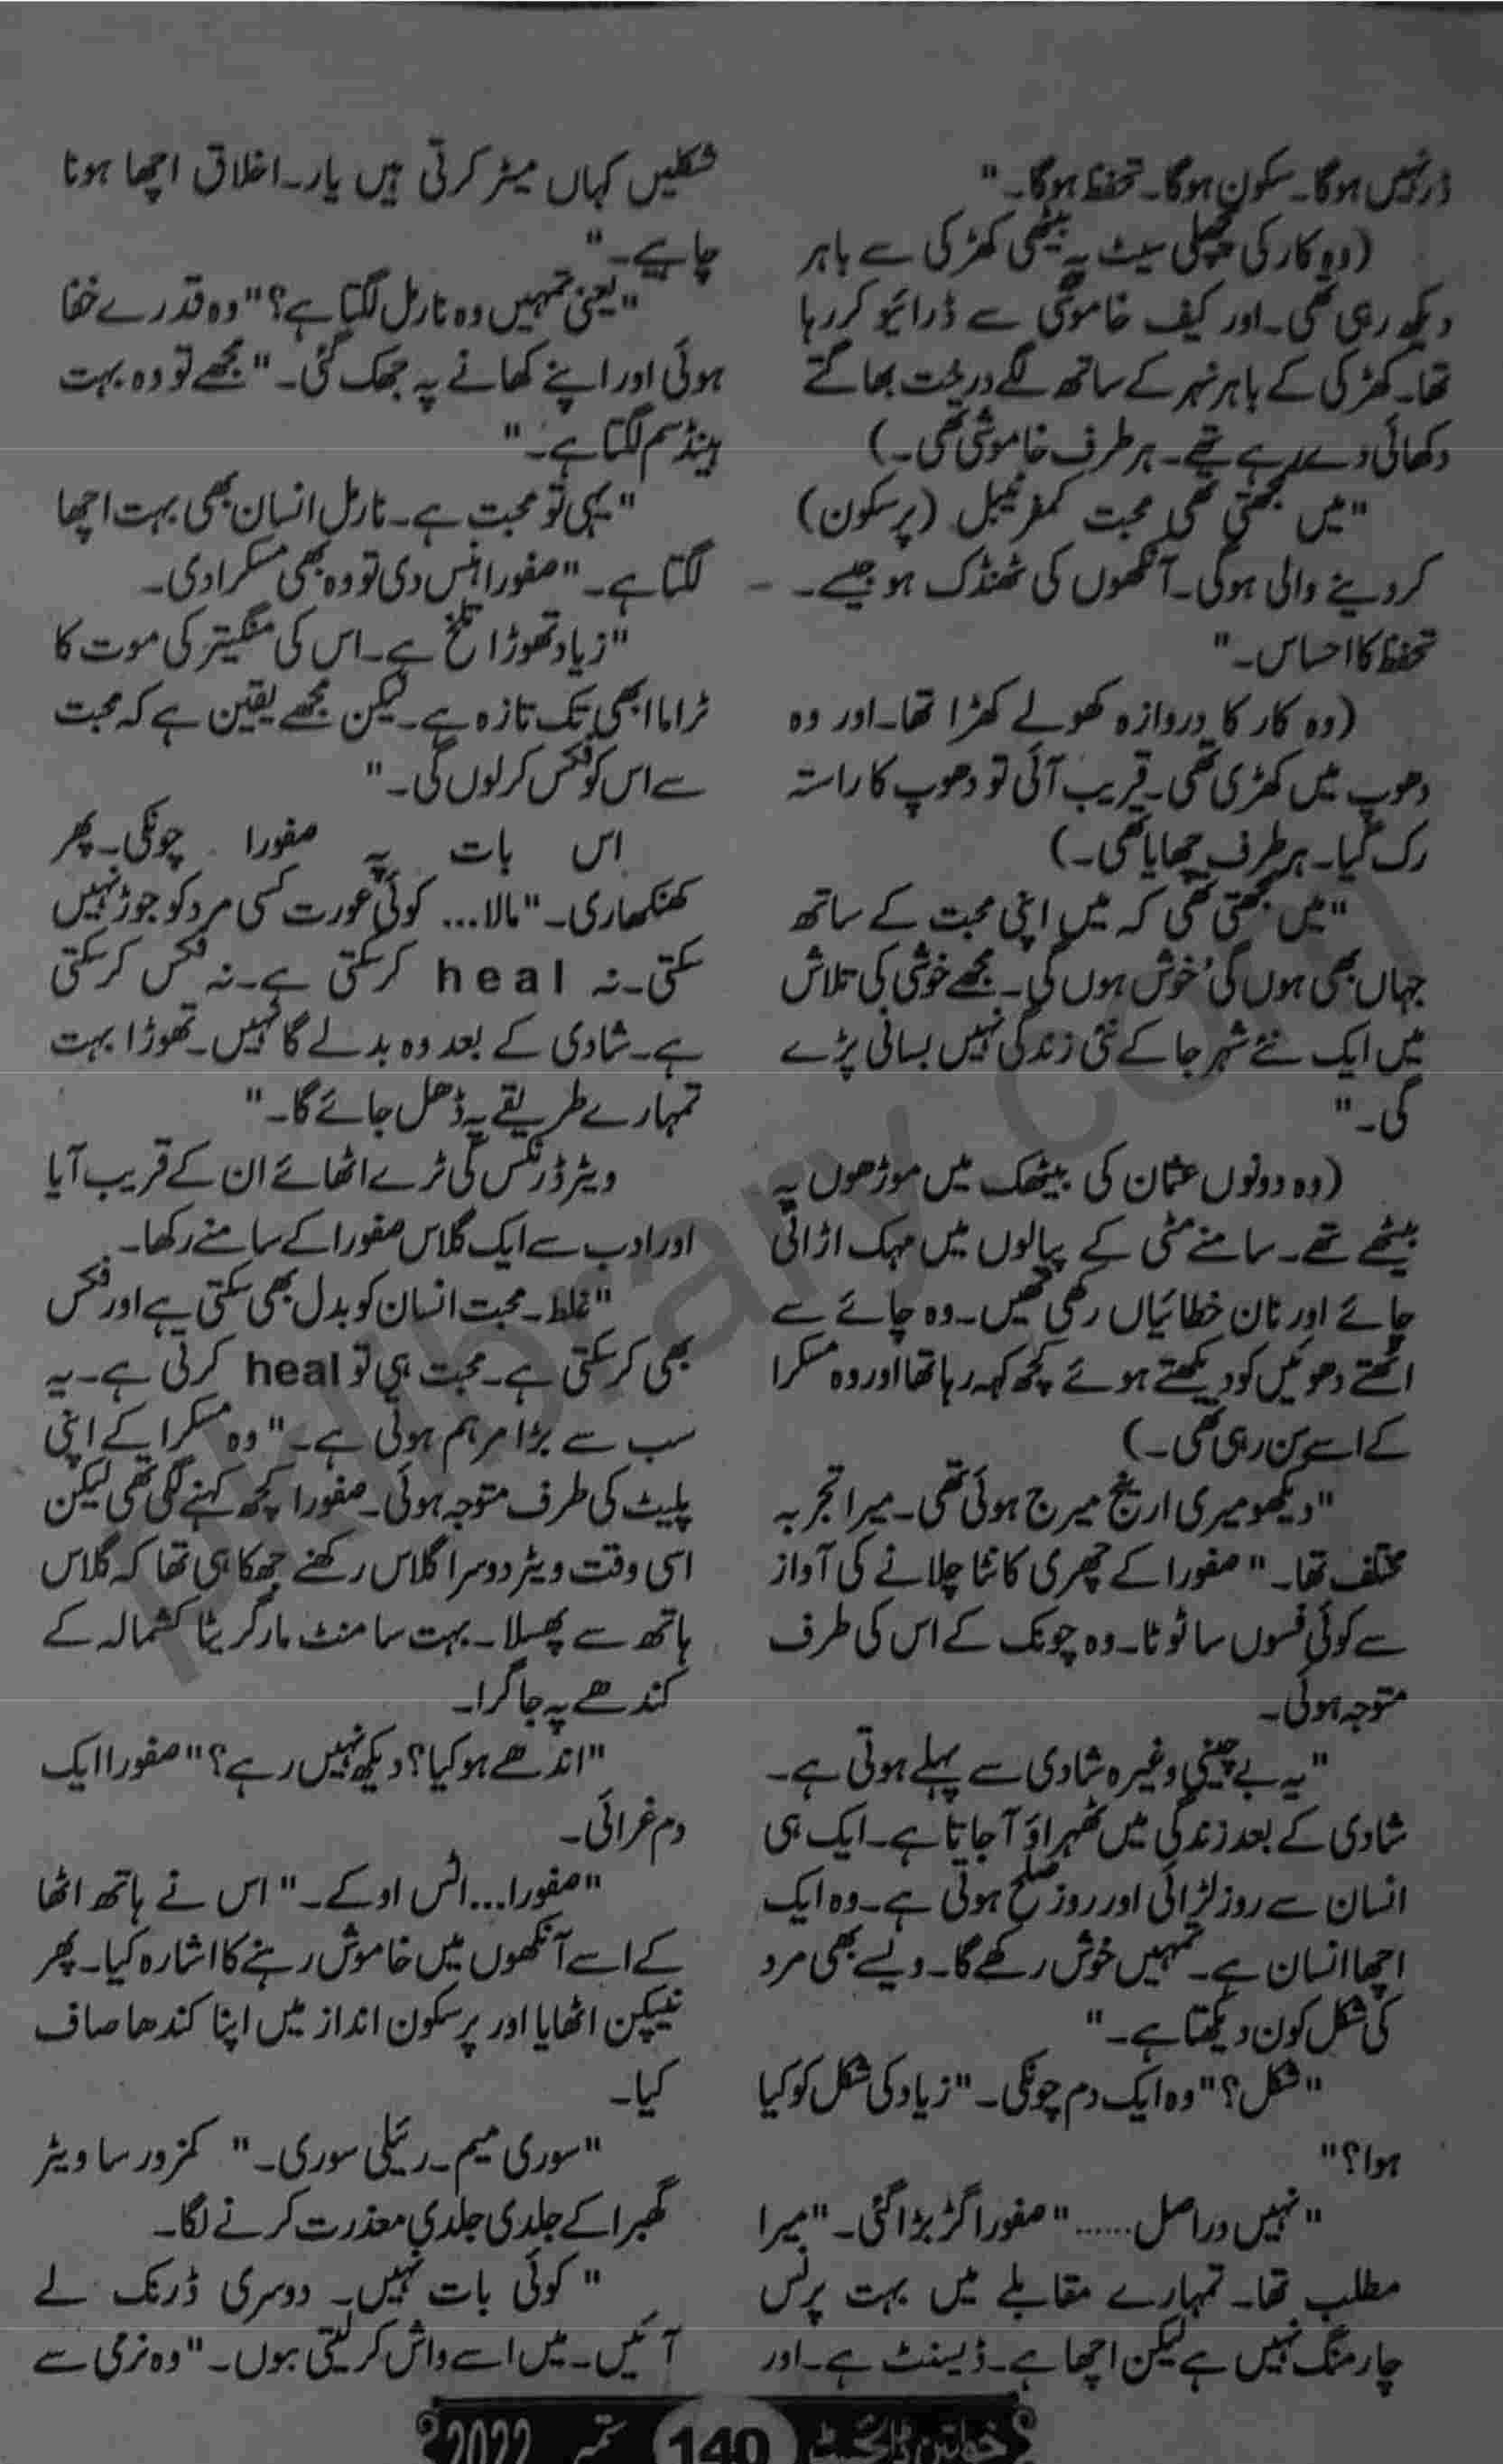 ڈر نہیں ہوگا۔ سکون ہوگا۔ تحفظ ہوگا۔"
(وہ کار کی پچھلی سیٹ پہ بیٹھی کھڑکی سے باہر
دیکھ رہی تھی۔ اور کیف خاموشی سے ڈرائیو کر رہا
تھا۔ کھڑکی کے باہر نہر کے ساتھ لگے درخت بھاگتے
دکھائی دے رہے تھے۔ ہر طرف خاموشی تھی۔)
"میں سمجھتی تھی محبت کمفرٹیبل (پرسکون)
کر دینے والی ہوگی۔ آنکھوں کی ٹھنڈک ہو جیسے۔
تحفظ کا احساس۔"
(وہ کار کا دروازہ کھولے کھڑا تھا۔ اور وہ
دھوپ میں کھڑی تھی۔ قریب آئی تو دھوپ کا راستہ
رک گیا۔ ہر طرف چھایا تھی۔)
"میں سمجھتی تھی کہ میں اپنی محبت کے ساتھ
جہاں بھی ہوں گی، خوش ہوں گی۔ مجھے خوشی کی تلاش
میں ایک نئے شہر جا کے نئی زندگی نہیں بسانی پڑے
گی۔"
(وہ دونوں عثمان کی بیٹھک میں موڑھوں پہ
بیٹھے تھے۔ سامنے مٹی کے پیالوں میں مہک اڑاتی
چائے اور نان خطائیاں رکھی تھیں۔ وہ چائے سے
اٹھتے دھوئیں کو دیکھتے ہوئے کچھ کہہ رہا تھا اور وہ مسکرا
کے اسے سن رہی تھی۔)
"دیکھو میری ارینج میرج ہوئی تھی۔ میرا تجربہ
مختلف تھا۔" صفورا کے چھری کانٹا چلانے کی آواز
سے کوئی فسوں سا ٹوٹا۔ وہ چونک کے اس کی طرف
متوجہ ہوئی۔
"یہ بے چینی وغیرہ شادی سے پہلے ہوتی ہے۔
شادی کے بعد زندگی میں ٹھہراؤ آ جاتا ہے۔ ایک ہی
انسان سے روز لڑائی اور روز صلح ہوتی ہے۔ وہ ایک
اچھا انسان ہے۔ تمہیں خوش رکھے گا۔ ویسے بھی مرد
کی شکل کون دیکھتا ہے۔"
"شکل؟" وہ ایک دم چونکی۔ "زیاد کی شکل کو کیا
ہوا؟"
"نہیں دراصل......" صفورا گڑبڑا گئی۔ "میرا
مطلب تھا۔ تمہارے مقابلے میں بہت پرنس
چارمنگ نہیں ہے لیکن اچھا ہے۔ ڈیسنٹ ہے۔ اور
شکلیں کہاں میٹر کرتی ہیں یار۔ اخلاق اچھا ہونا
چاہیے۔"
"یعنی تمہیں وہ نارمل لگتا ہے؟" وہ قدرے خفا
ہوئی اور اپنے کھانے پہ جھک گئی۔ "مجھے تو وہ بہت
ہینڈسم لگتا ہے۔"
"یہی تو محبت ہے۔ نارمل انسان بھی بہت اچھا
لگتا ہے۔" صفورا ہنس دی تو وہ بھی مسکرا دی۔
"زیاد تھوڑا تلخ ہے۔ اس کی منگیتر کی موت کا
ٹراما ابھی تک تازہ ہے۔ لیکن مجھے یقین ہے کہ محبت
سے اس کو فکس کر لوں گی۔"
اس بات پہ صفورا چونکی۔ پھر
کھنکھاری۔ "مالا... کوئی عورت کسی مرد کو جوڑ نہیں
سکتی۔ نہ heal کر سکتی ہے۔ نہ فکس کر سکتی
ہے۔ شادی کے بعد وہ بدلے گا نہیں۔ تھوڑا بہت
تمہارے طریقے پہ ڈھل جائے گا۔"
ویٹر ڈرنکس کی ٹرے اٹھائے ان کے قریب آیا
اور ادب سے ایک گلاس صفورا کے سامنے رکھا۔
"غلط۔ محبت انسان کو بدل بھی سکتی ہے اور فکس
بھی کر سکتی ہے۔ محبت ہی تو heal کرتی ہے۔ یہ
سب سے بڑا مرہم ہوتی ہے۔" وہ مسکرا کے اپنی
پلیٹ کی طرف متوجہ ہوئی۔ صفورا کچھ کہنے لگی تھی لیکن
اسی وقت ویٹر دوسرا گلاس رکھنے جھکا ہی تھا کہ گلاس
ہاتھ سے پھسلا۔ بہت سا منٹ مارگریٹا کشمالہ کے
کندھے پہ جا گرا۔
"اندھے ہو کیا؟ دیکھ نہیں رہے؟" صفورا ایک
دم غرائی۔
"صفورا... اٹس اوکے۔" اس نے ہاتھ اٹھا
کے اسے آنکھوں میں خاموش رہنے کا اشارہ کیا۔ پھر
نیپکن اٹھایا اور پرسکون انداز میں اپنا کندھا صاف
کیا۔
"سوری میم۔ رئیلی سوری۔" کمزور سا ویٹر
گھبرا کے جلدی جلدی معذرت کرنے لگا۔
"کوئی بات نہیں۔ دوسری ڈرنک لے
آئیں۔ میں اسے واش کر لیتی ہوں۔" وہ نرمی سے
خواتین ڈائجسٹ 140 ستمبر 2022
pklibrary.com